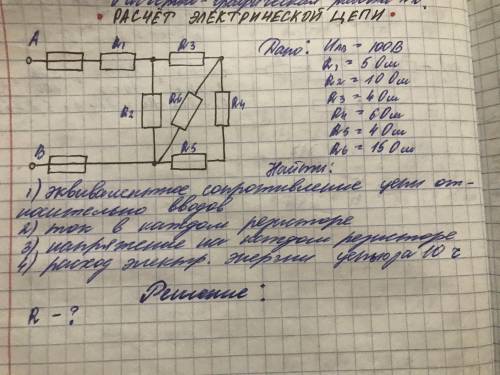 • РАСЧЕТ ЭЛЕКТРИЧЕСКОЙ ЦЕПИ •
A
R1
R3
R2
R6
R4
R5
B
Дано: UАВ = 100В
R1 = 5 Ом
R2 = 10 Ом
R3 = 4 Ом
R4 = 6 Ом
R5 = 4 Ом
R6 = 15 Ом
Найти:
1) эквивалентное сопротивление цепи от-
носительно вводов
2) ток в каждом резисторе
3) напряжение на каждом резисторе
4) расход электр. энергии цепью за 10 ч
Решение:
R - ?